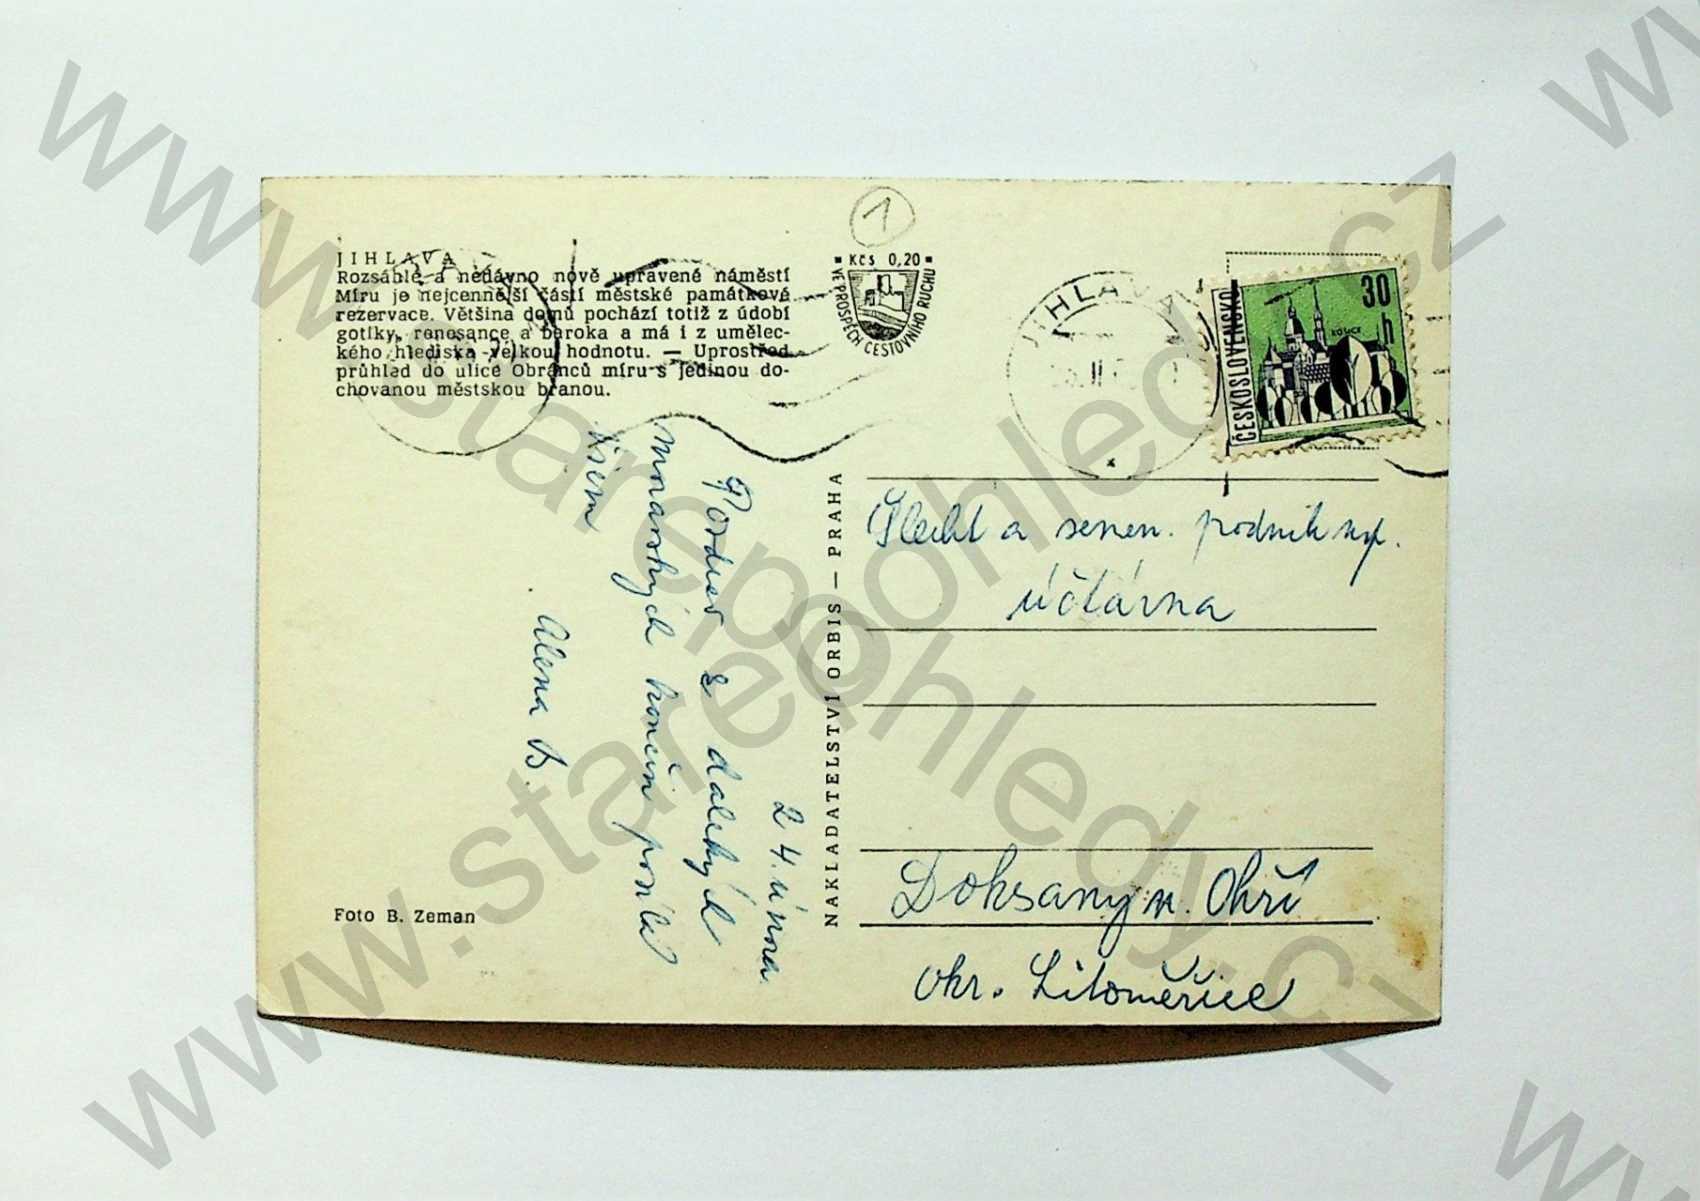 JIHLAVA
Rozsáhlé a nedávno nově upravené náměstí
Míru je nejcennější částí městské památkové
rezervace. Většina domů pochází totiž z údobí
gotiky, renesance a baroka a má i z umělec-
kého hlediska velkou hodnotu. — Uprostřed
průhled do ulice Obránců míru s jedinou do-
chovanou městskou branou.
1
Kčs 0,20
VE PROSPĚCH CESTOVNÍHO RUCHU
JIHLAVA
ČESKOSLOVENSKO
30 h
KOŠICE
24. února
Pozdrav z dalekých
končin posílá
Všem
Alena B.
NAKLADATELSTVÍ ORBIS — PRAHA
Šlecht a semen. podnik np.
účtárna
Doksany n. Ohří
okr. Litoměřice
Foto B. Zeman
www.starepohledy.cz
www.starepohledy.cz